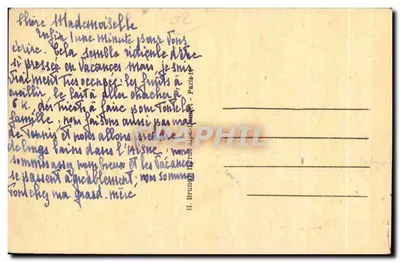 Chère Mademoiselle
Enfin 1 une minute pour vous
écrire. Cela semble ridicule d'être
si pressée en vacances mais je suis
vraiment très occupée: les fruits à
cueillir. le lait à aller chercher à
6 k. des tricots à faire pour toute la
famille. nous faisons aussi pas mal
de tennis et nous allons prendre
de longs bains dans l'Aisne. nous
sommes assez nombreux et les vacances
se passent agréablement, nous sommes
tous chez ma grand-mère
02
H. Brunet
Paris
CPAPHIL.com